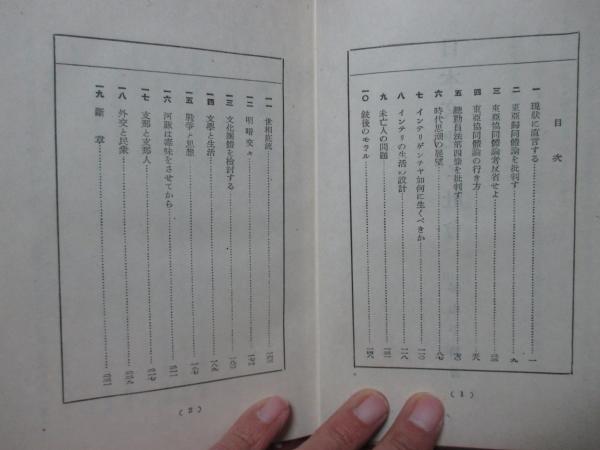 目次
一 現狀に直言する……一
二 東亞協同體論を批判す……九
三 東亞協同體論者反省せよ
四 東亞協同體論の行き方
五 總動員法第四條を批判す
六 時代思潮の展望
七 インテリゲンチヤ如何に生くべきか
八 インテリの生活の設計
九 未亡人の問題
一〇 銃後のモラル
(1)
一一 世相底流
一二 明暗交々
一三 文化團體を檢討する
一四 文學と生活
一五 戰爭と思想
一六 河豚は毒味をさせてから
一七 支那と支那人
一八 外交と民衆
一九 斷章
(2)